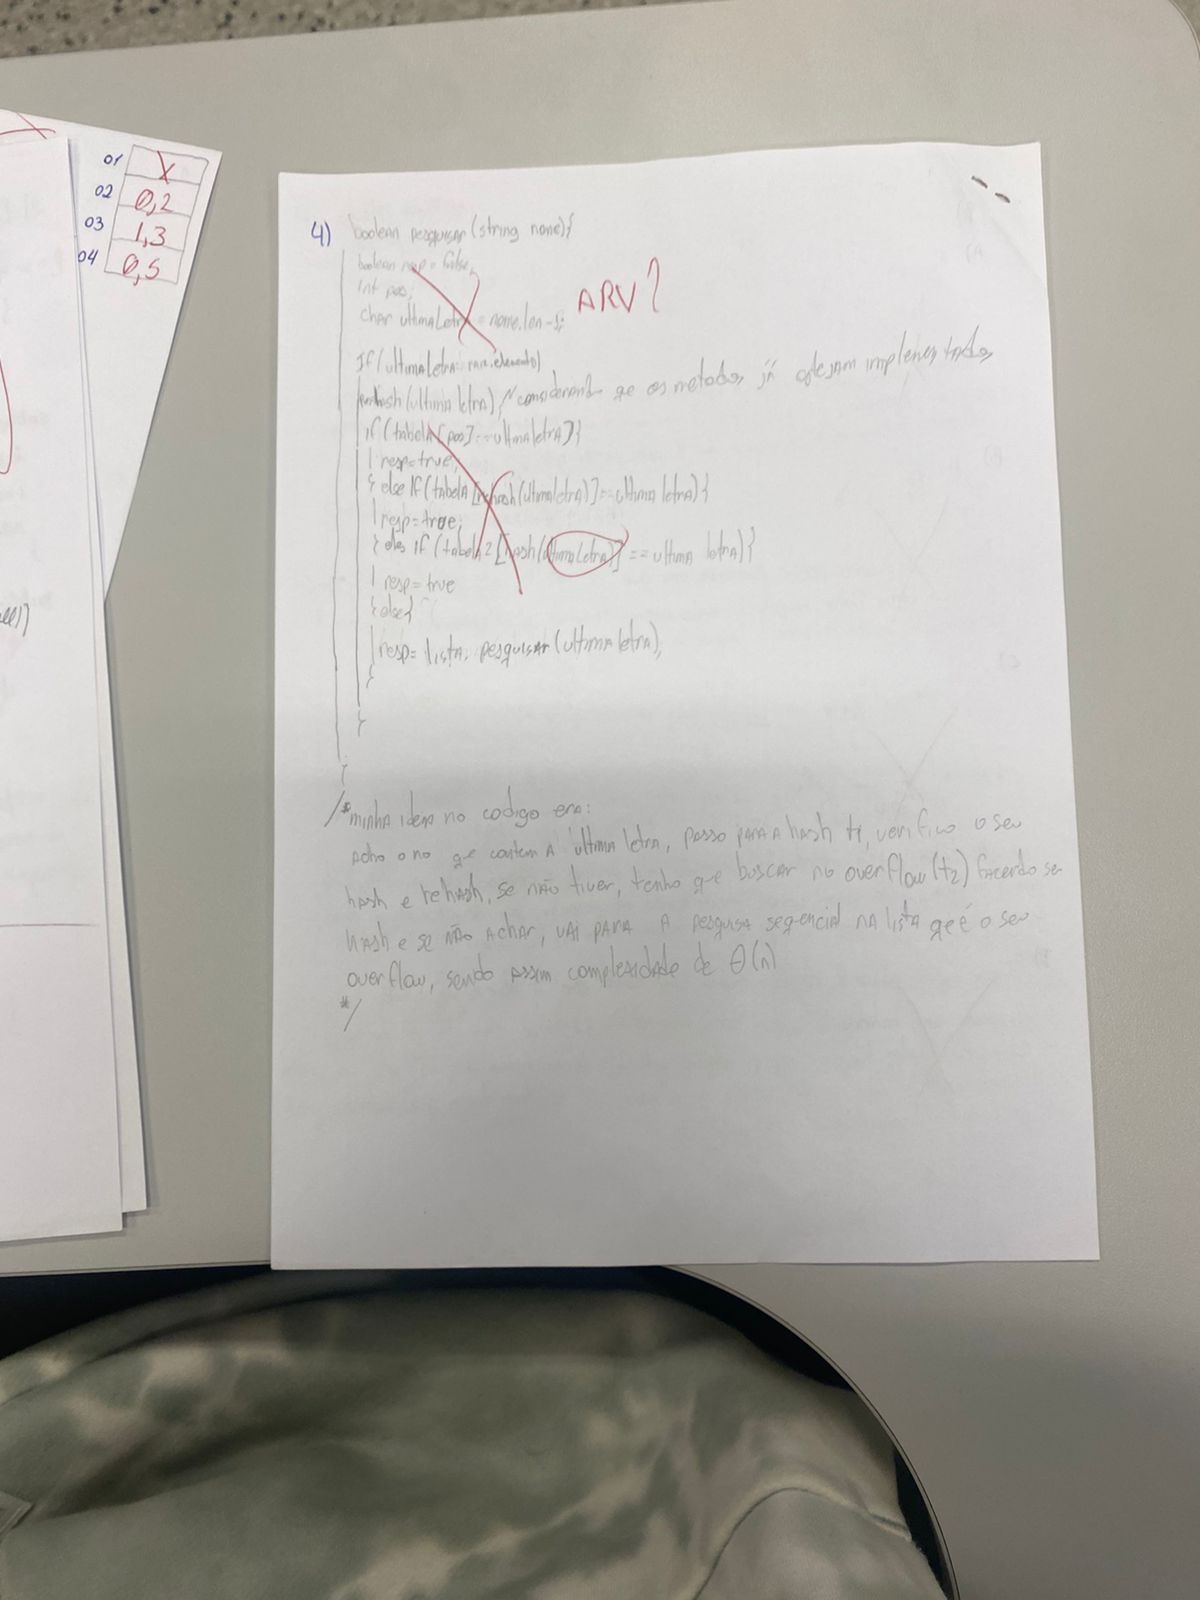 01 X
02 0,2
03 1,3
04 0,5
4) boolean pesquisar (string nome){
boolean resp = false;
int pos;
char ultimaLetra = nome.len-1;
ARV?
If (ultimaLetra == raiz.elemento)
hash(ultima letra) { // considerando qe os metodos já estejam implementados
if (tabela [pos] == ultimaletra){
resp=true;
} else If (tabela [rehash(ultimaletra)] == ultima letra) {
resp = true;
} eles if (tabela2 [hash(ultimaLetra)] == ultima letra) {
resp = true
} else{
resp = lista. pesquisar (ultima letra);
}
}
}
/* minha ideia no codigo era:
Acho o no qe contem A última letra, passo para a hash t1, verifico o seu
hash e rehash, se não tiver, tenho qe buscar no overflow (t2) fazendo seu
hash e se não Achar, vai para A pesquisa seqencial na lista qe é o seu
overflow, sendo assim complexidade de Θ(n)
*/